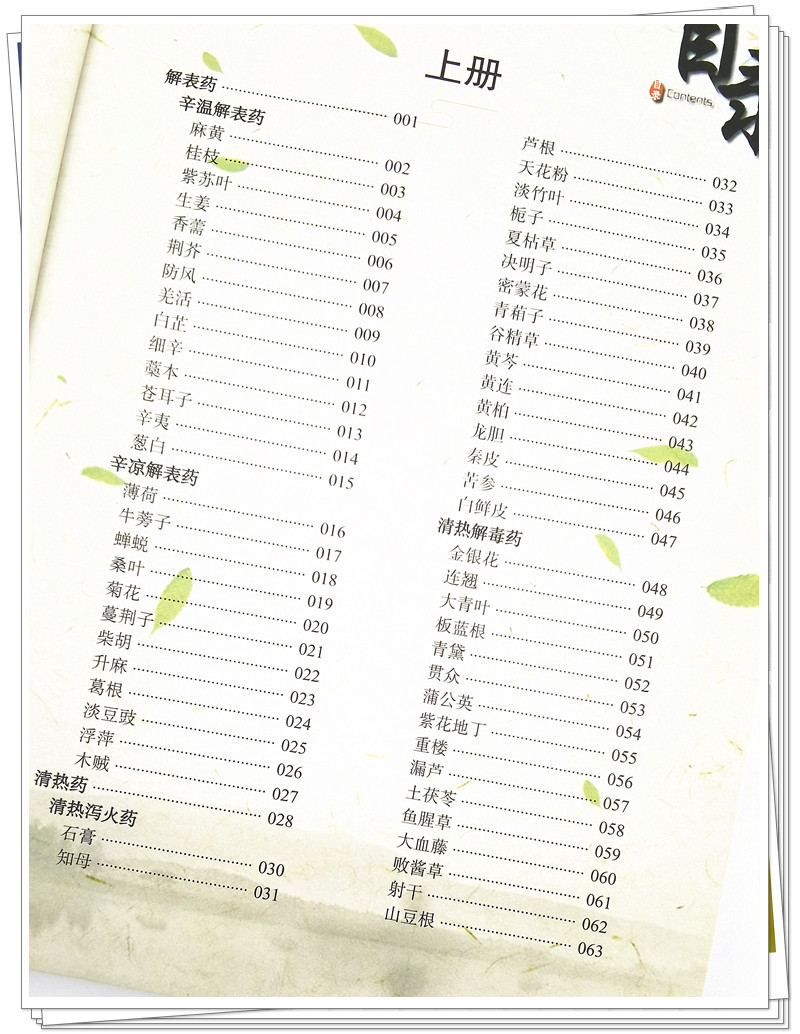 目录
目录 Contents
上册
解表药 001
辛温解表药
麻黄 002
桂枝 003
紫苏叶 004
生姜 005
香薷 006
荆芥 007
防风 008
羌活 009
白芷 010
细辛 011
藁本 012
苍耳子 013
辛夷 014
葱白 015
辛凉解表药
薄荷 016
牛蒡子 017
蝉蜕 018
桑叶 019
菊花 020
蔓荆子 021
柴胡 022
升麻 023
葛根 024
淡豆豉 025
浮萍 026
木贼 027
清热药 028
清热泻火药
石膏 030
知母 031
芦根 032
天花粉 033
淡竹叶 034
栀子 035
夏枯草 036
决明子 037
密蒙花 038
青葙子 039
谷精草 040
黄芩 041
黄连 042
黄柏 043
龙胆 044
秦皮 045
苦参 046
白鲜皮 047
清热解毒药
金银花 048
连翘 049
大青叶 050
板蓝根 051
青黛 052
贯众 053
蒲公英 054
紫花地丁 055
重楼 056
漏芦 057
土茯苓 058
鱼腥草 059
大血藤 060
败酱草 061
射干 062
山豆根 063